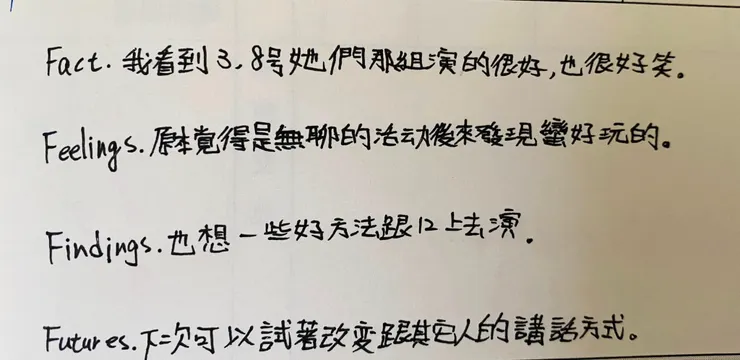 Fact. 我看到3、8号她們那組演的很好,也很好笑。
Feelings. 原本覺得是無聊的活动後來發現蠻好玩的。
Findings. 也想一些好方法跟12上去演。
Futures. 下次可以試著改变跟其它人的講話方式。